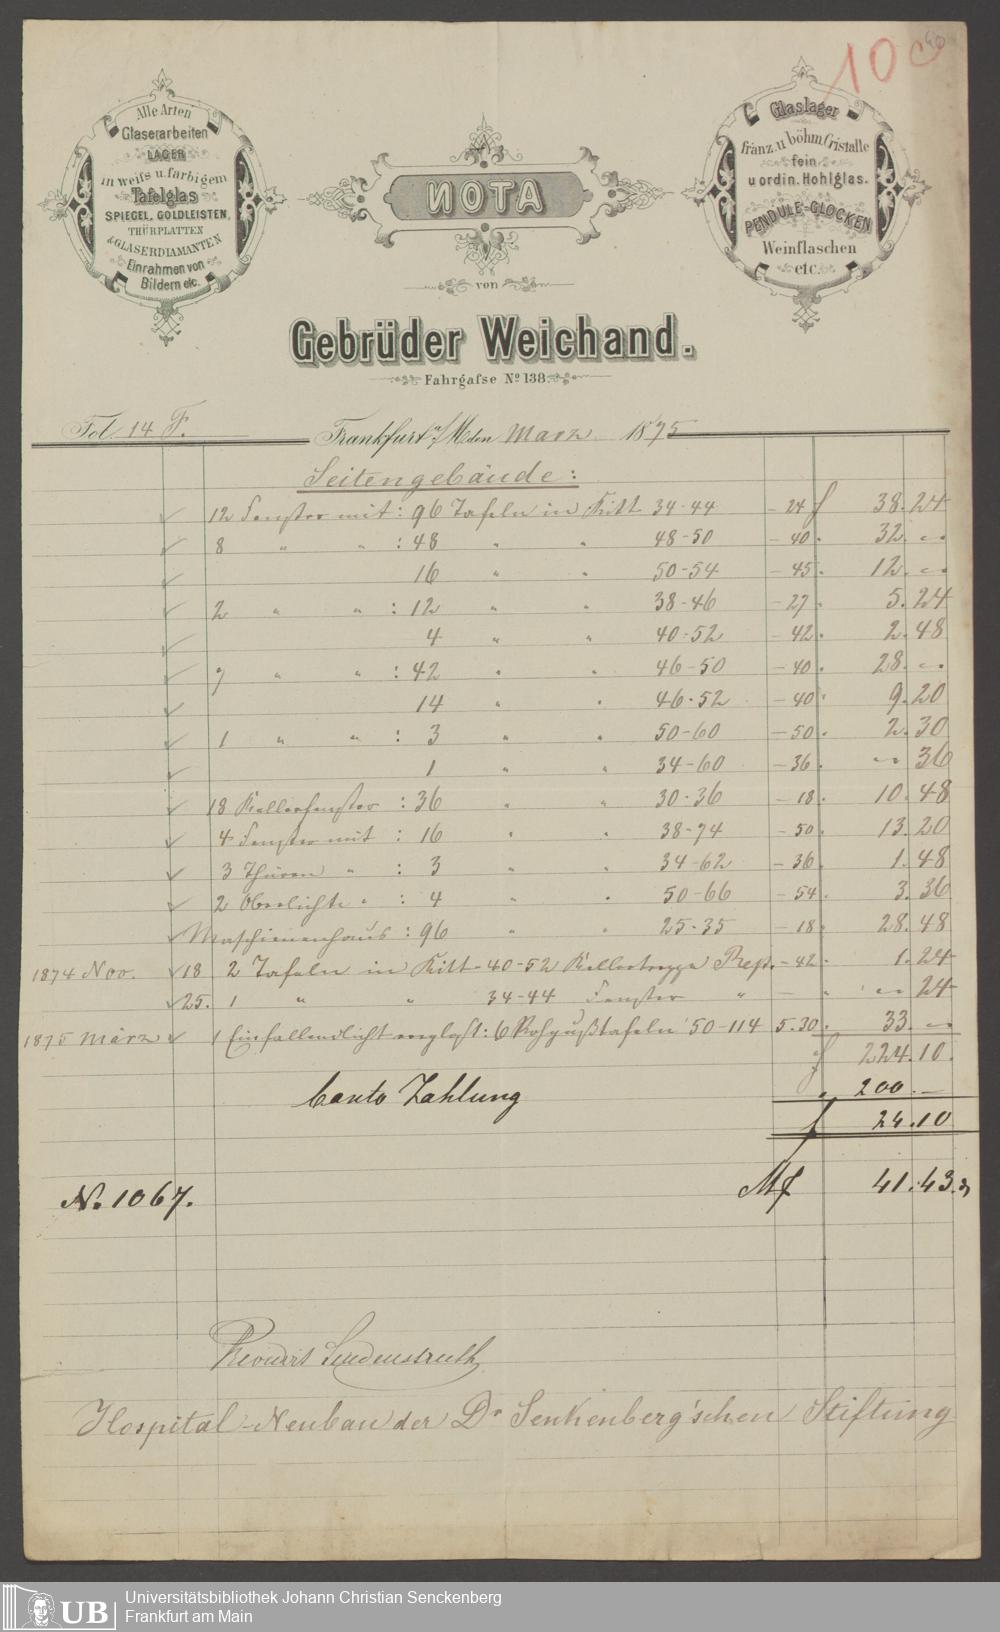 10c
40
Alle Arten
Glaserarbeiten
LAGER
in weifs u. farbigem
Tafelglas
SPIEGEL, GOLDLEISTEN,
THÜRPLATTEN
& GLASERDIAMANTEN
Einrahmen von
Bildern etc.
NOTA
von
Glaslager
franz. u böhm. Cristalle
fein
u ordin. Hohlglas.
PENDULE-GLOCKEN
Weinflaschen
etc.
Gebrüder Weichand.
Fahrgafse No 138.
Fol. 14 F.
Frankfurt a/M den Marz 1875
Seitengebäude:
12 Fenster mit : 96 Tafeln in Kitt 34-44 - 24 f 38. 24
8 " " : 48 " " 48-50 - 40 . 32. "
16 " " 50-54 - 45 . 12. "
2 " " : 12 " " 38-46 - 27 . 5. 24
4 " " 40-52 - 42 . 2. 48
7 " " : 42 " " 46-50 - 40 . 28. "
14 " " 46-52 - 40 . 9. 20
1 " " : 3 " " 50-60 - 50 . 2. 30
1 " " 34-60 - 36 . " 36
18 Kellerfenster : 36 " " 30-36 - 18 . 10. 48
4 Fenster mit : 16 " " 38-74 - 50 . 13. 20
3 Thüren " : 3 " " 34-62 - 36 . 1. 48
2 Oberlichte " : 4 " " 50-66 - 54 . 3. 36
Maschienenhaus : 96 " " 25-35 - 18 . 28. 48
1874 Nov. 18 2 Tafeln in Kitt 40-52 Kellertreppe Rep. - 42 . 1. 24
25. 1 " " 34-44 Fenster " - " " 24
1875 März 1 Einfallendlicht verglast : 6 Rohgußtafeln 50-114 5.30 . 33. "
f 224. 10.
Conto Zahlung " 200. —
f 24. 10
No. 1067. Mf 41. 43.
Revidirt Lindenstruth
Hospital-Neubau der Dr Senkenberg'schen Stiftung
UB
Universitätsbibliothek Johann Christian Senckenberg
Frankfurt am Main